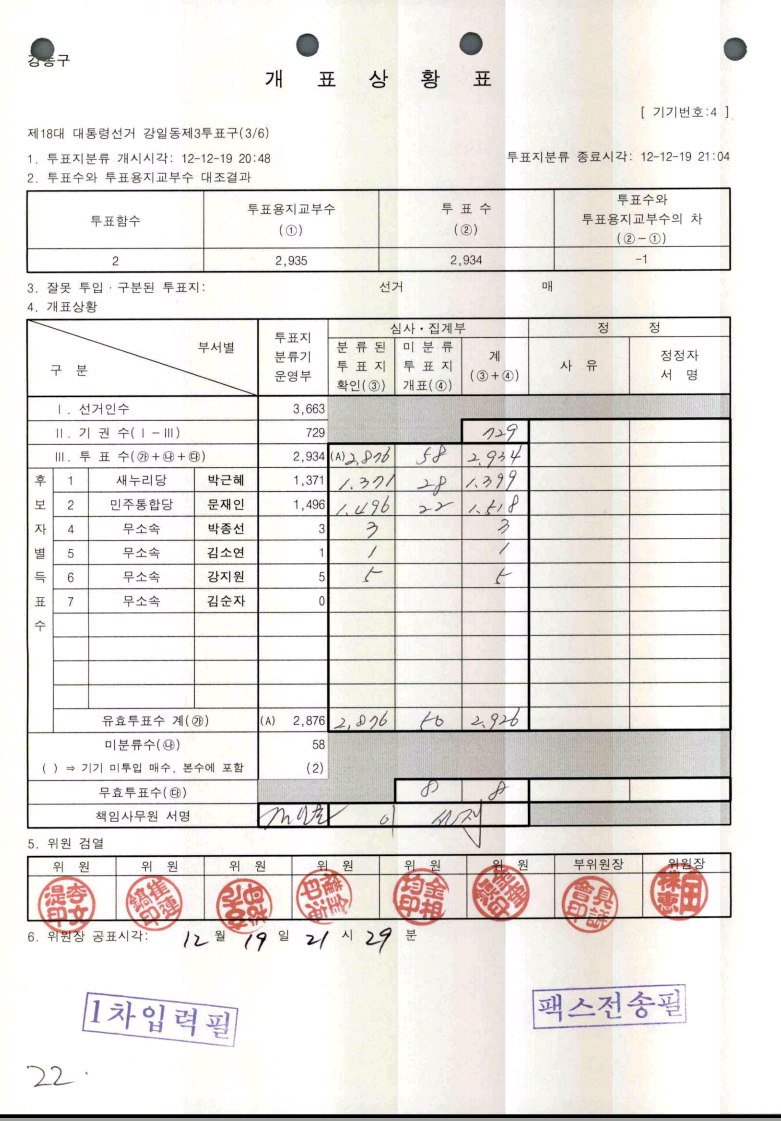 강동구
개 표 상 황 표
[ 기기번호:4 ]
제18대 대통령선거 강일동제3투표구(3/6)
1. 투표지분류 개시시각: 12-12-19 20:48 투표지분류 종료시각: 12-12-19 21:04
2. 투표수와 투표용지교부수 대조결과
투표함수 투표용지교부수 (①) 투 표 수 (②) 투표수와 투표용지교부수의 차 (②-①)
2 2,935 2,934 -1
3. 잘못 투입·구분된 투표지: 선거 매
4. 개표상황
구 분 부서별 투표지 분류기 운영부 심사·집계부 정 정
분 류 된 투 표 지 확인(③) 미 분 류 투 표 지 개표(④) 계 (③+④) 사 유 정정자 서 명
Ⅰ. 선거인수 3,663
Ⅱ. 기 권 수(Ⅰ-Ⅲ) 729 729
Ⅲ. 투 표 수(㉮+㉯+㉰) 2,934 (A) 2,876 58 2,934
후보자별득표수
1 새누리당 박근혜 1,371 1.371 28 1.399
2 민주통합당 문재인 1,496 1.496 22 1.518
4 무소속 박종선 3 3 3
5 무소속 김소연 1 1 1
6 무소속 강지원 5 5 5
7 무소속 김순자 0
유효투표수 계(㉮) (A) 2,876 2,876 50 2.926
미분류수(㉯) 58
( ) ⇒ 기기 미투입 매수, 본수에 포함 (2)
무효투표수(㉰) 8 8
책임사무원 서명
5. 위원 검열
위 원 위 원 위 원 위 원 위 원 위 원 부위원장 위원장
6. 위원장 공표시각: 12 월 19 일 21 시 29 분
1차입력필
팩스전송필
22.